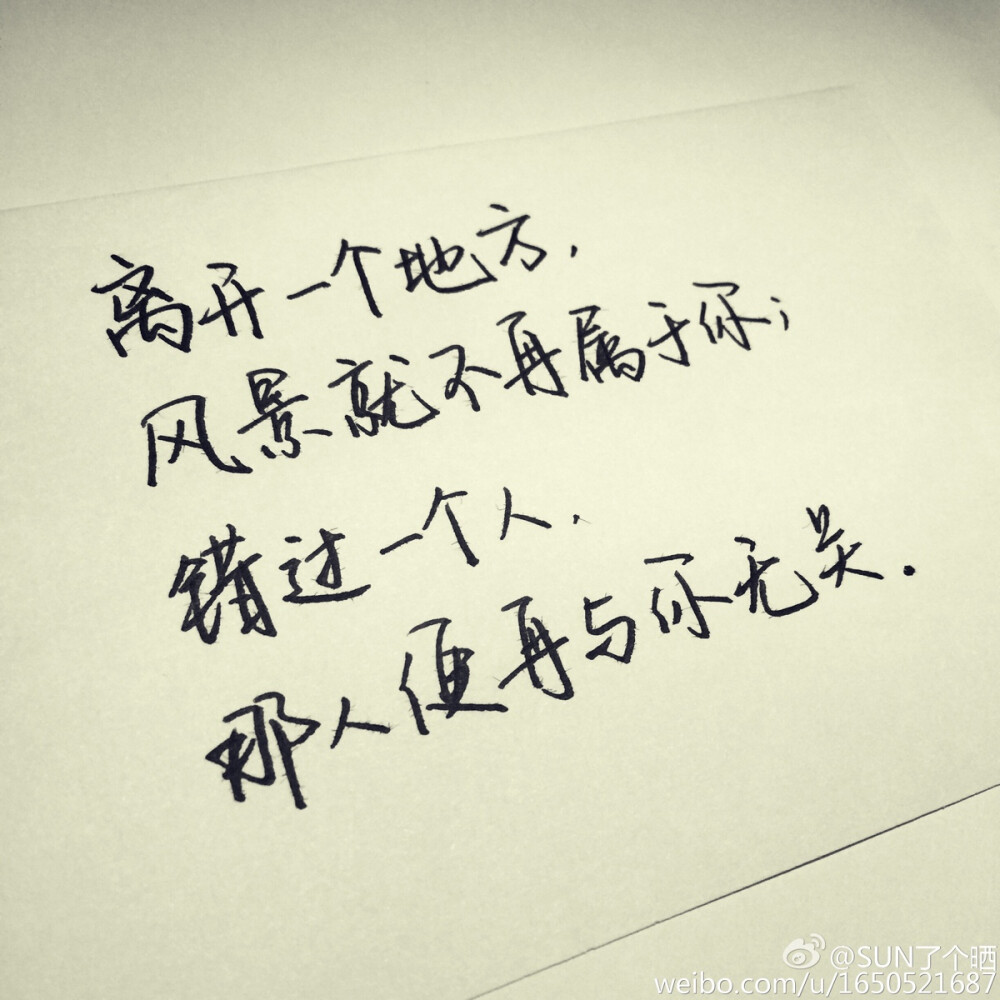 离开一个地方,
风景就不再属于你;
错过一个人,
那人便再与你无关.
@SUN了个晒
weibo.com/u/1650521687